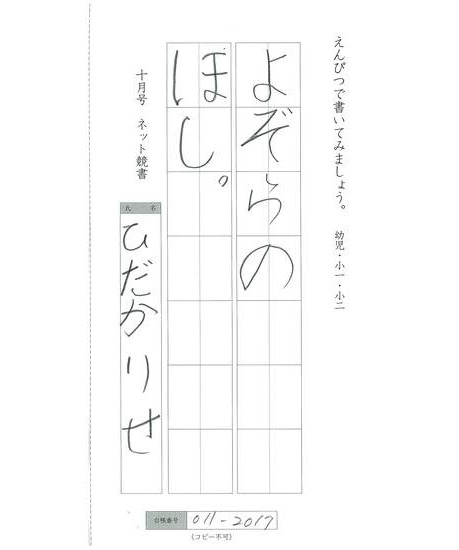 えんぴつで書いてみましょう。 幼児・小一・小二
よぞらの
ほし。
十月号 ネット競書
氏名
ひだかりせ
台帳番号 011-2017
(コピー不可)